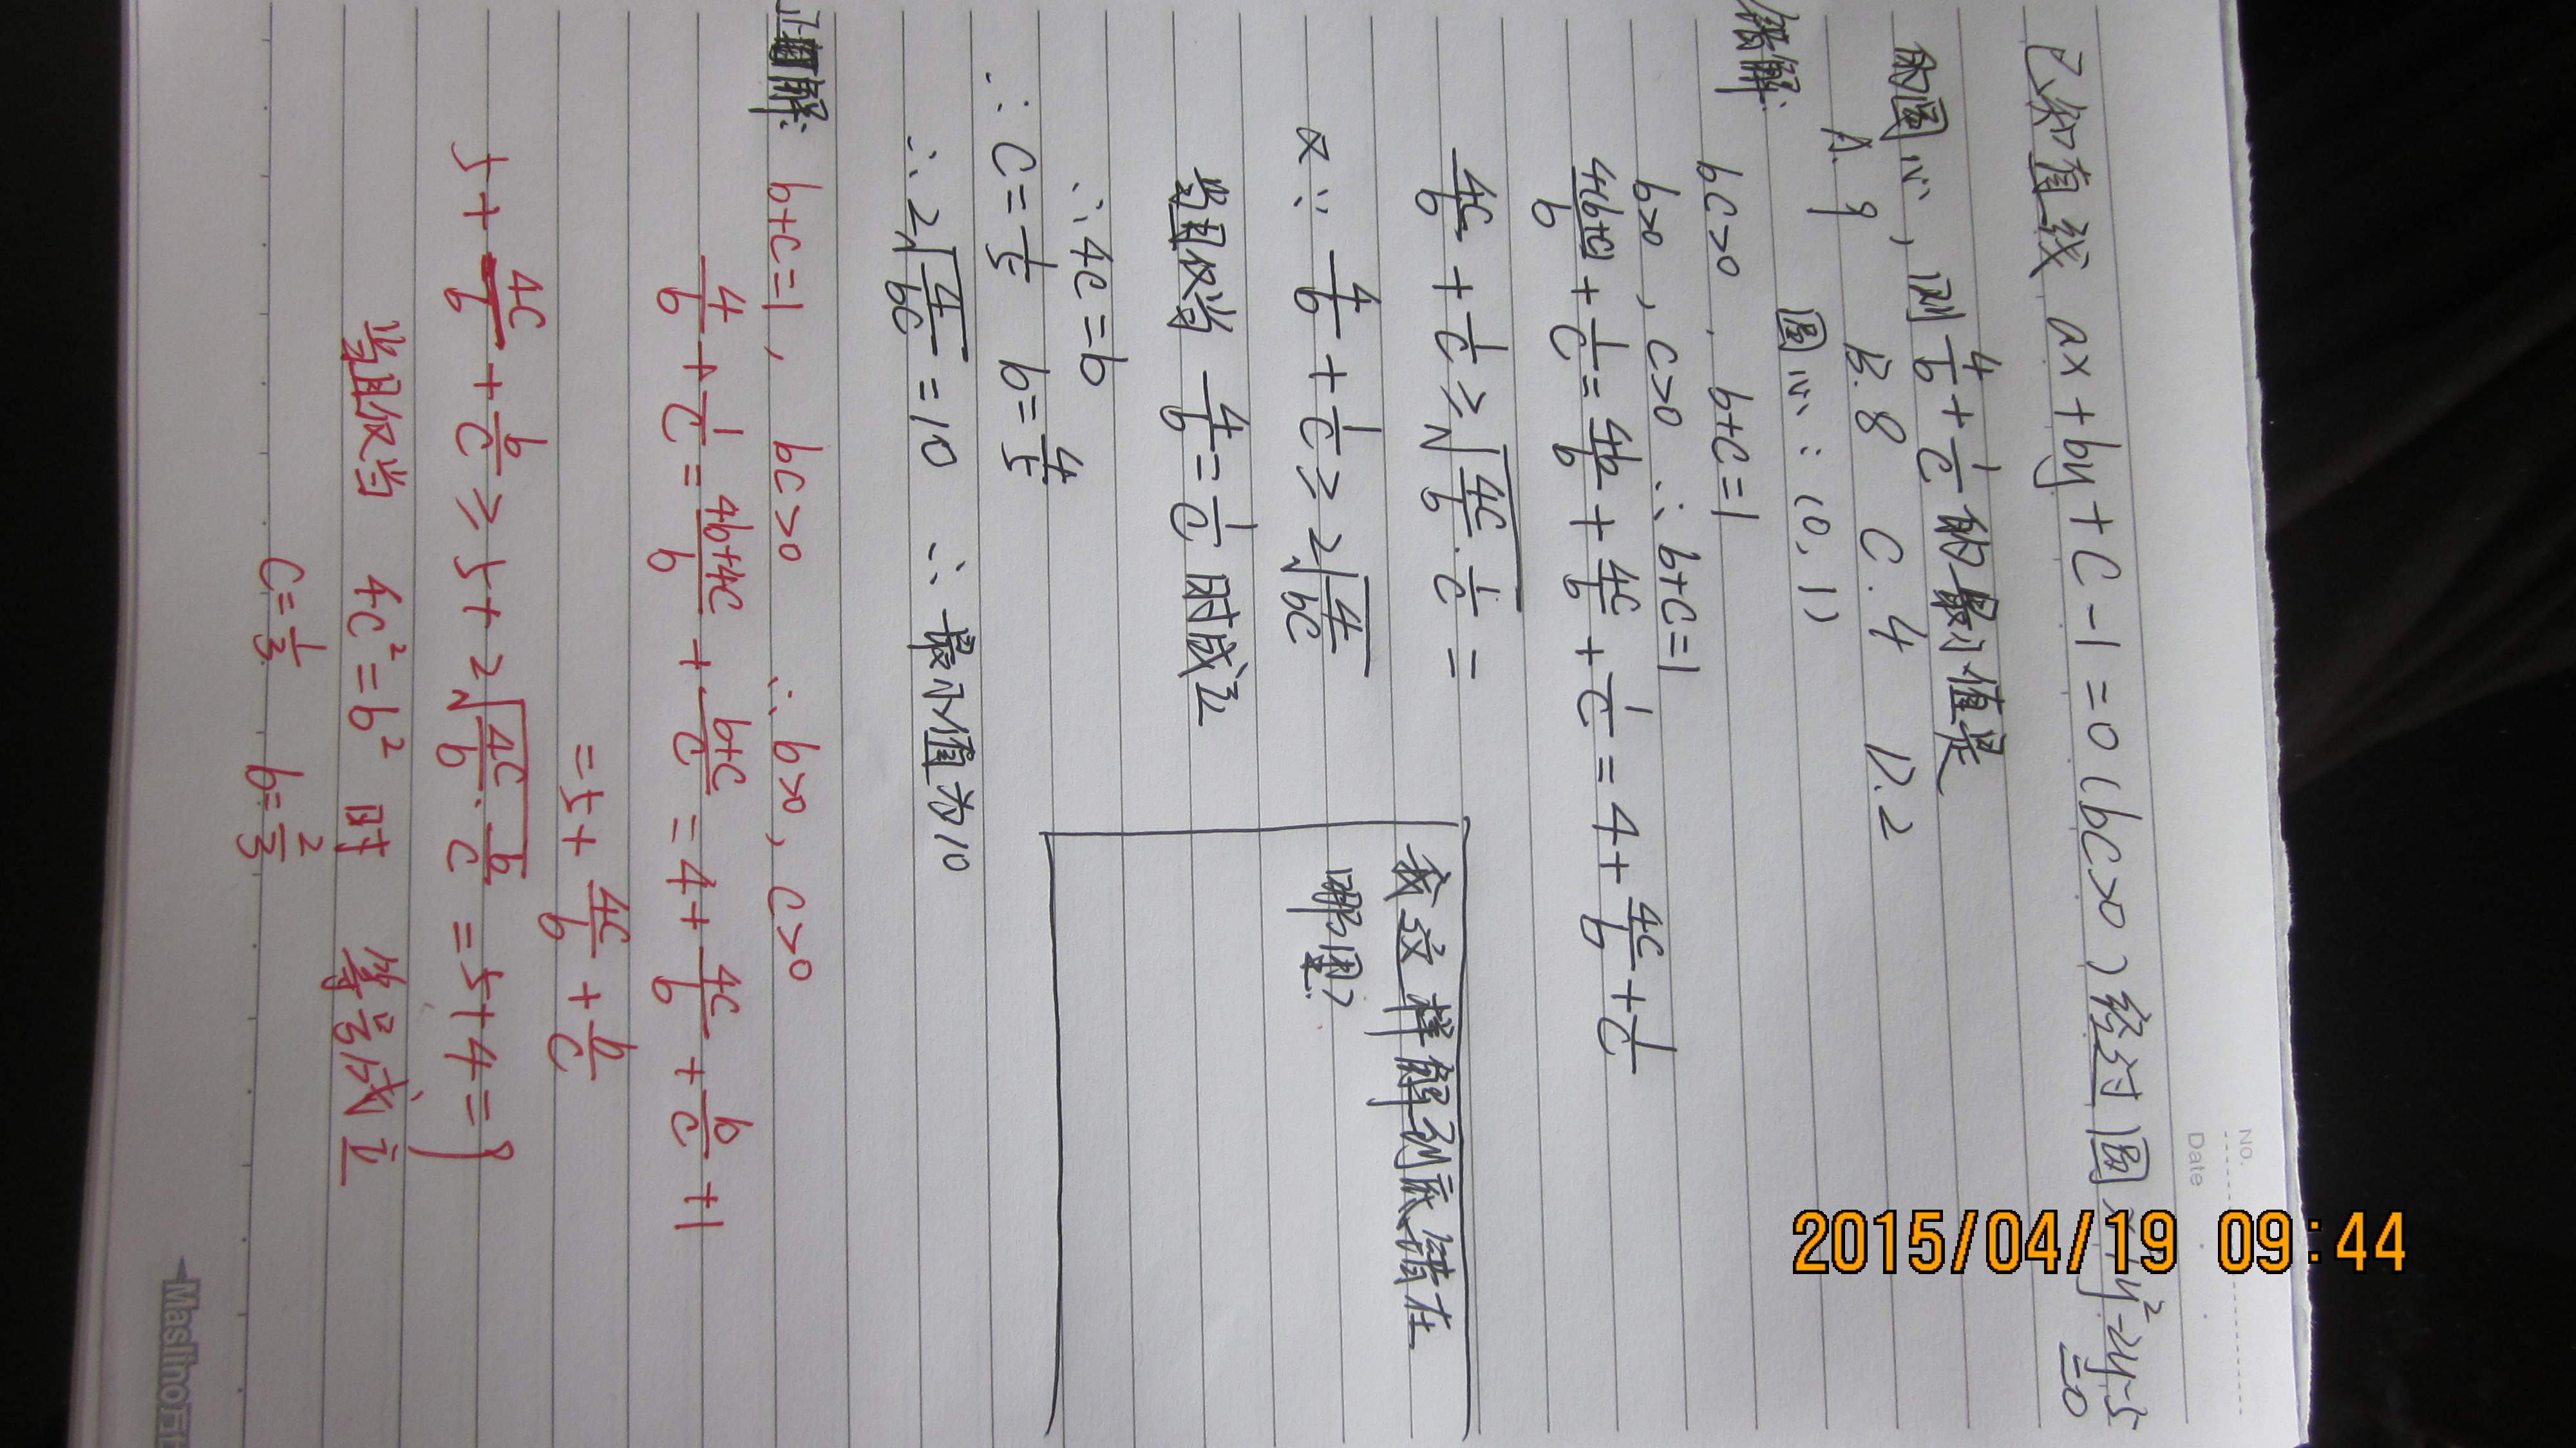 No.
Date
已知直线 ax+by+C-1=0(bC>0)经过圆x²+y²-2y-5=0
的圆心,则 4/b + 1/C 的最小值是
A. 9 B. 8 C. 4 D. 2
圆心:(0,1)
错解:
bC>0, b+C=1
b>0, C>0 ∴ b+C=1
4(b+C)/b + 1/C = 4b/b + 4C/b + 1/C = 4 + 4C/b + 1/C
4C/b + 1/C ≥ √(4C/b · 1/C) =
又∵ 4/b + 1/C ≥ 2√(4/bC)
当且仅当 4/b = 1/C 时成立
∴ 4C=b
∴ C=1/5 b=4/5
∴ 2√(4/bC) = 10 ∴ 最小值为10
我这样解到底错在
哪里?
正确解: b+C=1, bC>0 ∴ b>0, C>0
4/b + 1/C = (4b+4C)/b + (b+C)/C = 4 + 4C/b + b/C + 1
= 5 + 4C/b + b/C
5 + 4C/b + b/C ≥ 5 + 2√(4C/b · b/C) = 5+4=9
当且仅当 4C²=b² 时 等号成立
C=1/3 b=2/3
2015/04/19 09:44